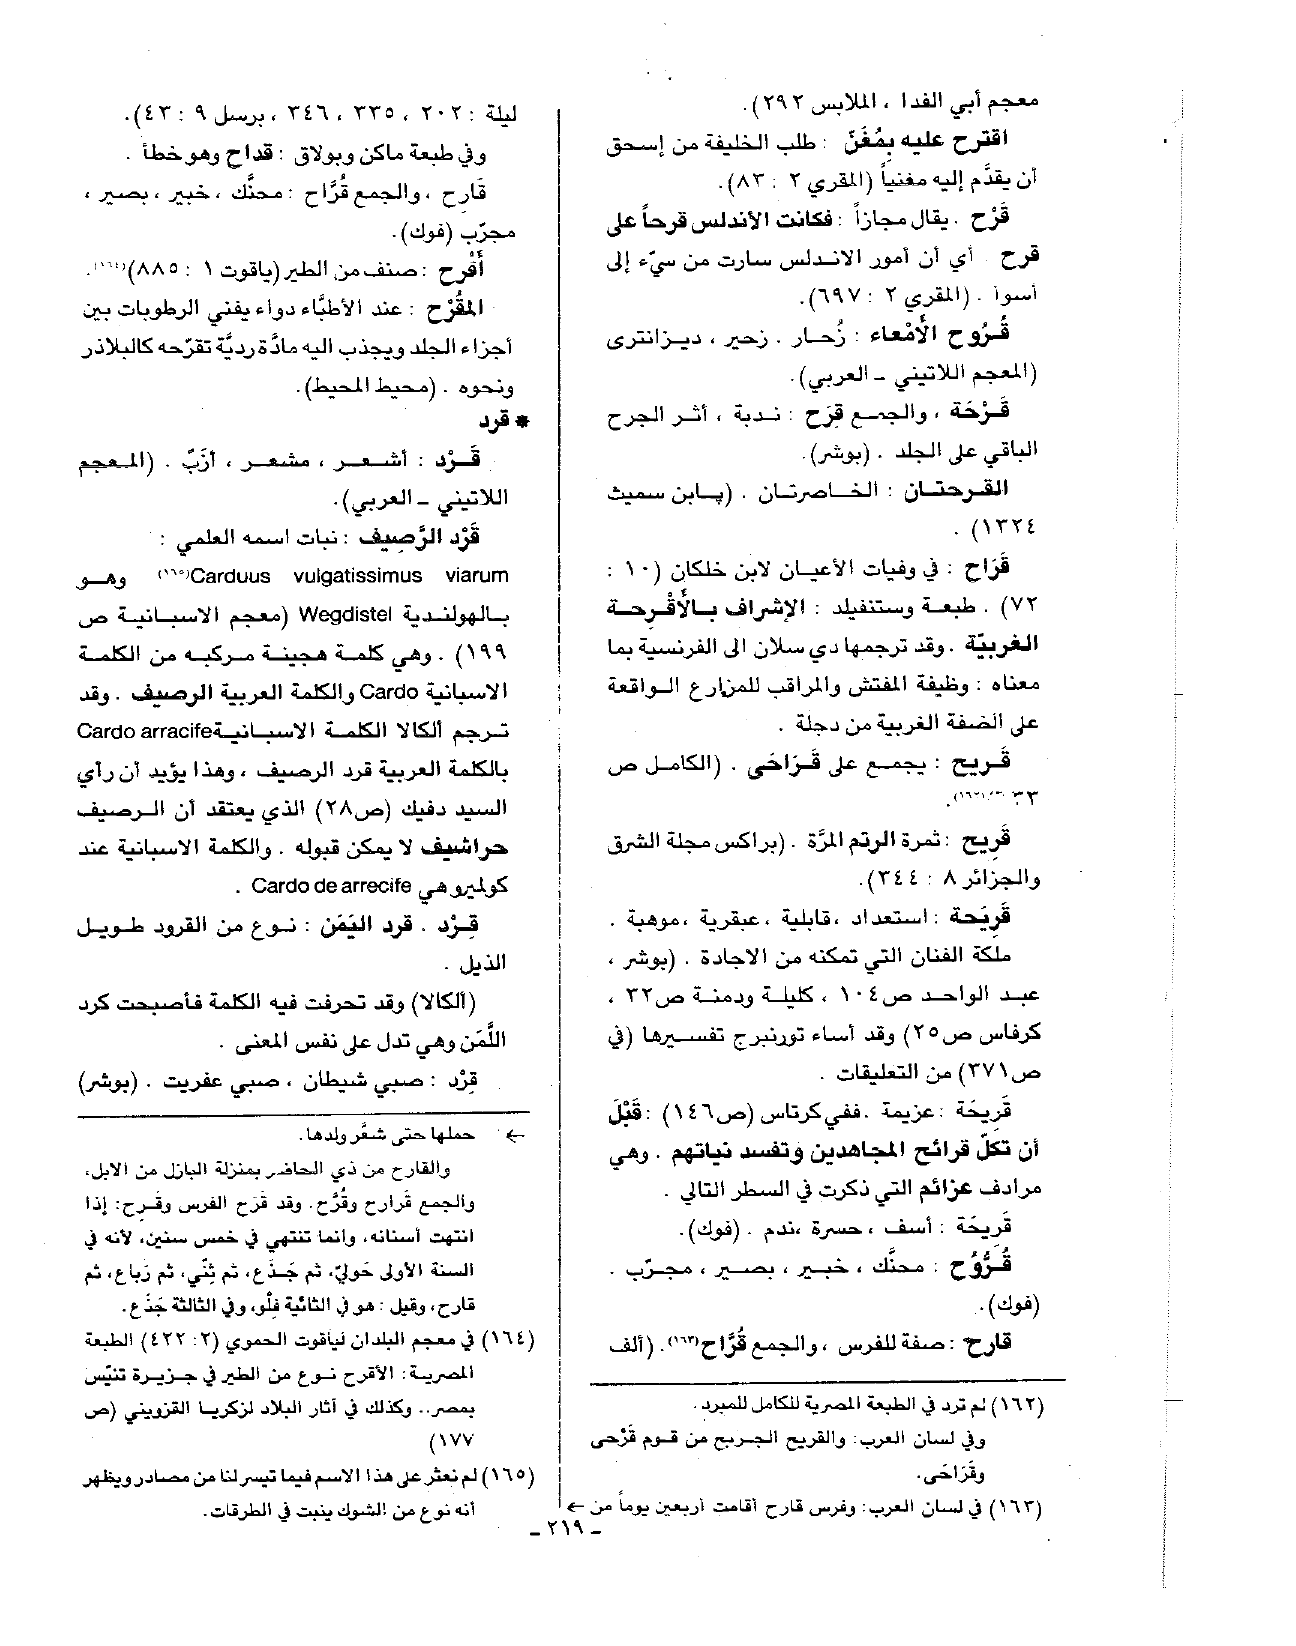 معجم أبي الفدا ، الملابس ٢٩٢).
اقترح عليه بِمُغَنّ : طلب الخليفة من إسحق
أن يقدَّم إليه مغنياً (المقري ٢ : ٨٣).
قَرْح . يقال مجازاً : فكانت الأندلس قرحاً على
قرح أي أن أمور الاندلس سارت من سيّء إلى
أسوأ . (المقري ٢ : ٦٩٧).
قُرُوح الأمْعاء : زُحار . زحير ، ديزانترى
(المعجم اللاتيني ـ العربي).
قَرْحَة ، والجمع قِرَح : ندبة ، أثر الجرح
الباقي على الجلد . (بوشر).
القرحتان : الخاصرتان . (پاين سميث
١٣٢٤) .
قَرَاح : في وفيات الأعيان لابن خلكان (١٠ :
٧٢) . طبعة وستنفيلد : الإشراف بالأقْرحة
الغربيّة . وقد ترجمها دي سلان الى الفرنسية بما
معناه : وظيفة المفتش والمراقب للمزارع الواقعة
على الضفة الغربية من دجلة .
قَريح : يجمع على قَرَاحَى . (الكامل ص
٣٣ (١٦٢)).
قَريح : ثمرة الرتم المرَّة . (براكس مجلة الشرق
والجزائر ٨ : ٣٤٤).
قَرِيْحَة : استعداد ، قابلية ، عبقرية ، موهبة .
ملكة الفنان التي تمكنه من الاجادة . (بوشر ،
عبد الواحد ص١٠٤ ، كليلة ودمنة ص٢٢ ،
كرفاس ص٢٥) وقد أساء تورنبرج تفسيرها (في
ص٣٧١) من التعليقات .
قَرِيحَة : عزيمة . ففي كرتاس (ص١٤٦) : قَبْلَ
أن تكلّ قرائح المجاهدين وتفسد نياتهم . وهي
مرادف عزائم التي ذكرت في السطر التالي .
قَرِيحَة : أسف ، حسرة ، ندم . (فوك).
قُرُّوْح : محنَّك ، خبير ، بصير ، مجرّب .
(فوك).
قارح : صفة للفرس ، والجمع قُرَّاح(١٦٣). (ألف
(١٦٢) لم ترد في الطبعة المصرية للكامل للمبرد.
وفي لسان العرب: والقريح الجريح من قوم قَرْحى
وقَرَاحَى.
(١٦٣) في لسان العرب: وفرس قارح أقامت أربعين يوماً من ←
ليلة : ٢٠٢ ، ٣٣٥ ، ٣٤٦ ، برسل ٩ : ٤٣).
وفي طبعة ماكن وبولاق : قداح وهو خطأ .
قَارح ، والجمع قُرَّاح : محنَّك ، خبير ، بصير ،
مجرّب (فوك).
أَقْرح : صنف من الطير (ياقوت ١ : ٨٨٥)(١٦٤).
المقُرّح : عند الأطبَّاء دواء يفني الرطوبات بين
أجزاء الجلد ويجذب اليه مادَّة رديَّة تقرّحه كالبلاذر
ونحوه . (محيط المحيط).
* قرد
قَرْد : أشعر ، مشعر ، أزَبّ . (المعجم
اللاتيني ـ العربي).
قَرْد الرَّصِيف : نبات اسمه العلمي :
Carduus vulgatissimus viarum(١٦٥) وهو
بالهولندية Wegdistel (معجم الاسبانية ص
١٩٩) . وهي كلمة هجينة مركبه من الكلمة
الاسبانية Cardo والكلمة العربية الرصيف . وقد
ترجم ألكالا الكلمة الاسبانية Cardo arracife
بالكلمة العربية قرد الرصيف ، وهذا يؤيد أن رأي
السيد دفيك (ص٢٨) الذي يعتقد أن الرصيف
حراشيف لا يمكن قبوله . والكلمة الاسبانية عند
كولميرو هي Cardo de arrecife .
قِرْد . قرد اليَمَن : نوع من القرود طويل
الذيل .
(ألكالا) وقد تحرفت فيه الكلمة فأصبحت كرد
اللَّمَن وهي تدل على نفس المعنى .
قِرْد : صبي شيطان ، صبي عفريت . (بوشر)
← حملها حتى شعَّر ولدها.
والقارح من ذي الحافر بمنزلة البازل من الابل،
والجمع قوارح وقُرَّح. وقد قَرَح الفرس وقَرِح: إذا
انتهت أسنانه، وانما تنتهي في خمس سنين، لأنه في
السنة الأولى حَوليّ، ثم جَذَع، ثم ثَنّي، ثم رَباع، ثم
قارح، وقيل : هو في الثانية فلُو، وفي الثالثة جَذَع.
(١٦٤) في معجم البلدان لياقوت الحموي (٢: ٤٢٢) الطبعة
المصرية: الأقرح نوع من الطير في جزيرة تنّيس
بمصر.. وكذلك في آثار البلاد لزكريا القزويني (ص
١٧٧)
(١٦٥) لم نعثر على هذا الاسم فيما تيسر لنا من مصادر ويظهر
أنه نوع من الشوك ينبت في الطرقات.
ـ ٢١٩ ـ